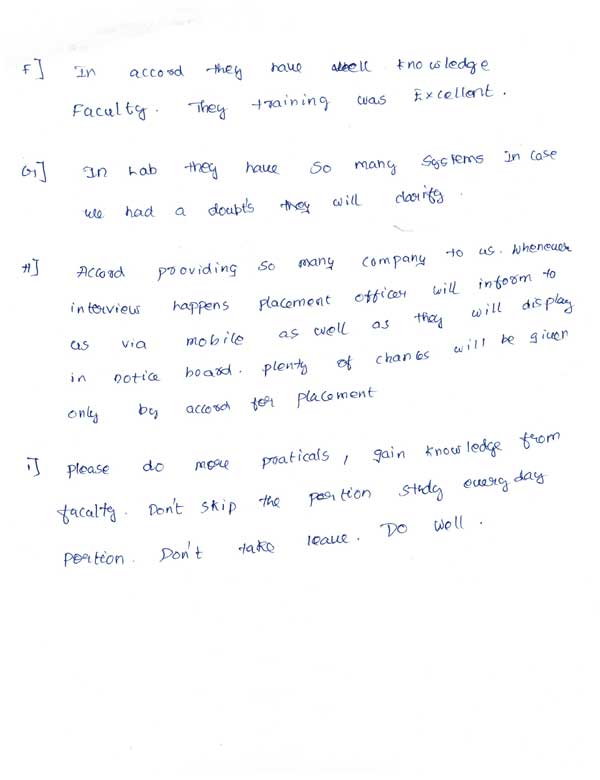 F] In accord they have well knowledge
Faculty. They training was Excellent.
G] In Lab they have so many systems in case
we had a doubt's they will clarify.
H] Accord prooviding so many company to us. whenever
interview happens placement officer will inform to
us via mobile as well as they will display
in notice board. plenty of changs will be given
only by accord for placement
i] please do more praticals, gain knowledge from
facalty. Don't skip the portion study every day
portion. Don't take leave. Do well.